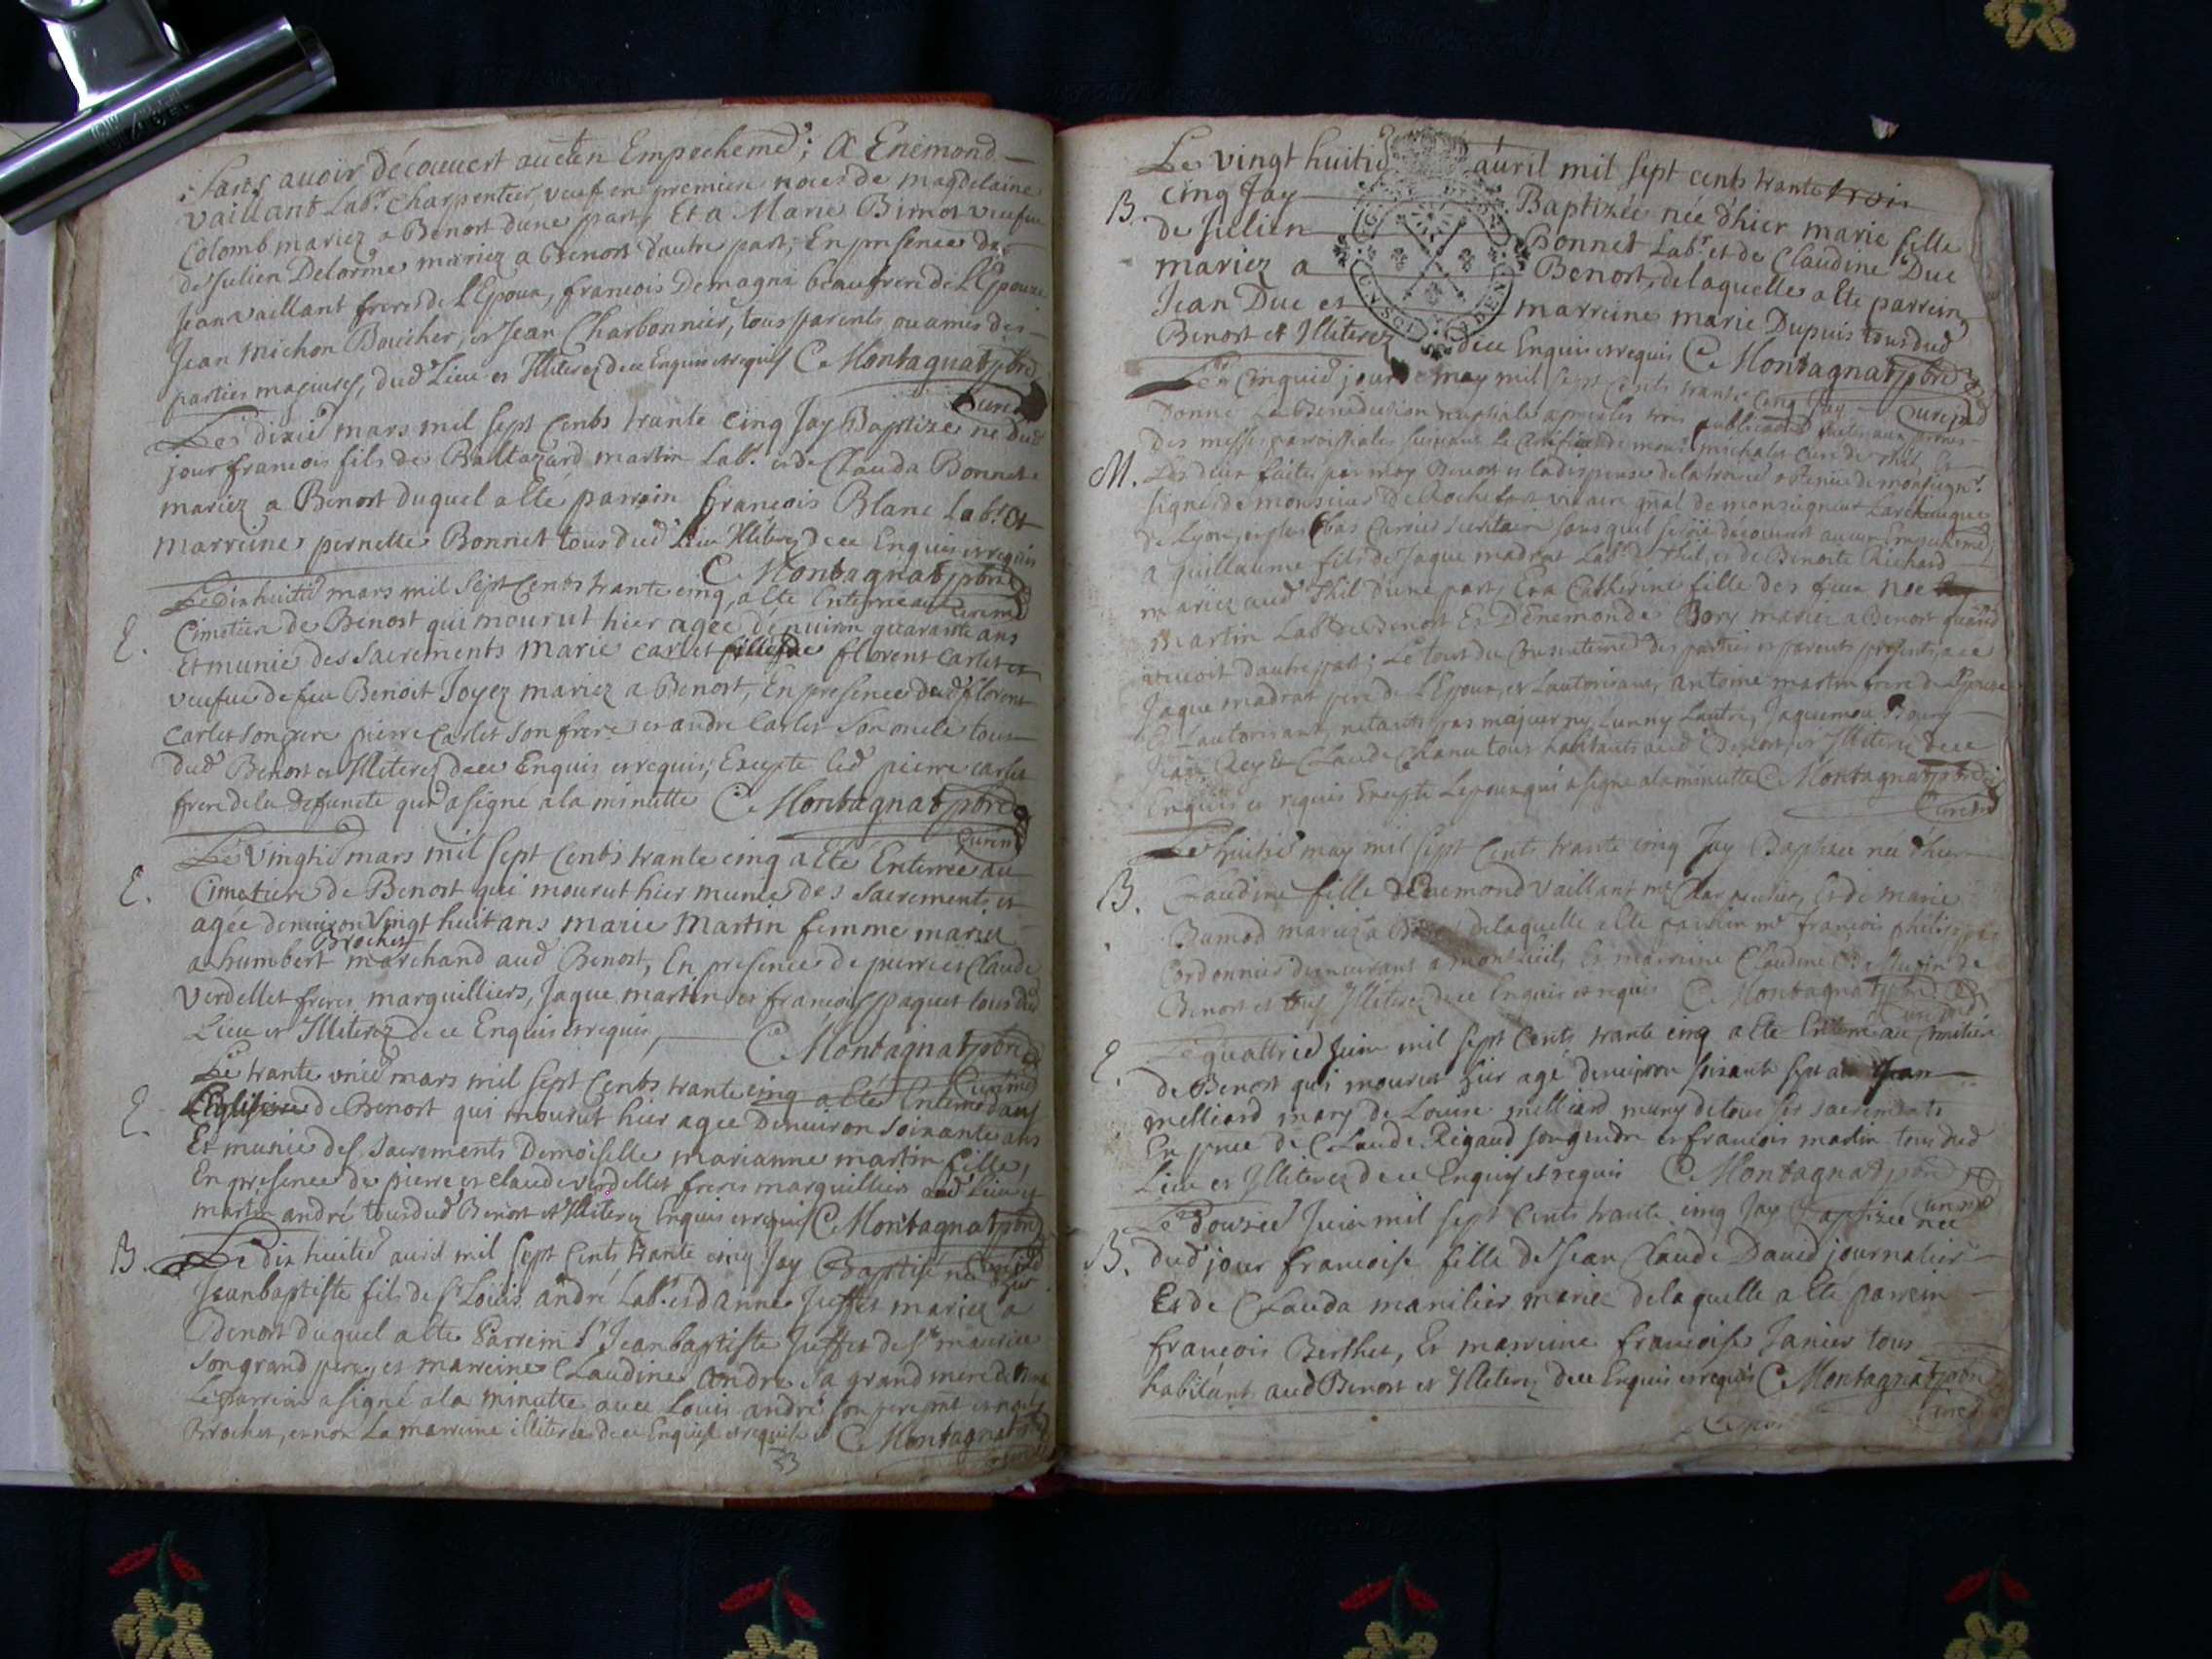 Sans avoir découvert aucun Empechemt; A Enemond
vaillant Labr. Charpentier, veuf en premiere noces de magdelaine
Colomb mariez a Benost dune part, Et a Marie Birnot veufue
de Julien Delorme mariez a Benost dautre part; En presence de
Jean vaillant frere de L'Epoux, francois Demagni beaufrere de L'Epouze
Jean michon Boucher, et Jean Charbonnier, tous parents ou amis des
parties majeures, dud Lieu et Illiterez de ce Enquis et requis C. Montagnat pbre
Curé
Le dixie mars mil sept cents trante cinq Jay Baptize ne dud
jour francois fils de Baltazard martin Labr. et de Clauda Bonnet
mariez a Benost duquel a été parrein francois Blanc Labr. et
marreine pernette Bonnet tous dud Lieu Illiterez de ce Enquis et requis
C. Montagnat pbre
Le dixhuitie mars mil sept cents trante cinq, a été Enterrée au
E. Cimetiere de Benost qui mourut hier agée denuiron quarante ans
Et munie des Sacrements marie carlet fille de florent carlet et
veufue de feu Benoit Joyez mariez a Benost, En presence dud florent
carlet son pere pierre carlet son frere et andré Carlet son oncle tous
dud Benost et Illiterez de ce Enquis et requis; Excepte led pierre carlet
frere de la defuncte qui a signé a la minutte C. Montagnat pbre
Curé
Le vingtie mars mil sept cents trante cinq a été Enterrée au
E. Cimetiere de Benost qui mourut hier munie des Sacrements et
agée denuiron vingt huit ans marie martin femme mariez
Brochet
a humbert marchand aud Benost, En presence de pierre et Claude
verdellet freres marguilliers, Jaque martin et francois paquet tous dud
Lieu et Illiterez de ce Enquis et requis, C. Montagnat pbre
Le trante unie mars mil sept cents trante cinq a été Enterré dans
E. L'Eglise de Benost qui mourut hier agée denuiron soixante ans
Et munie des Sacrements Demoiselle marianne martin fille,
En presence de pierre et claude verdellet freres marguilliers aud Lieu et
martin andré tous dud Benost et Illiterez Enquis et requis C. Montagnat pbre
B. Le dixhuitie auril mil sept cents trante cinq Jay Baptisé né hier
Jeanbaptiste fils de Sr Louis andré Labr. et danne Jeuffet mariez a
Benost duquel a été Parrein Sr Jeanbaptiste Jeuffet de St maurice
son grand pere, et marreine Claudine andré sa grand mere de
Le parrein a signé a la minutte avec Louis andré son pere
Brochet, et non La marreine illiterée de ce Enquise et requise C. Montagnat
23
Le vingt huitie auril mil sept cents trante trois
B. cinq Jay Baptizée née d'hier marie fille
de Julien Bonnet Labr. et de Claudine Duc
mariez a Benost, de laquelle a été parrein
Jean Duc et marreine marie Dupuis tous dud
Benost et Illiterez de ce Enquis et requis C. Montagnat pbre
Curé
Le cinquie jour de may mil sept cents trante cinq Jay
donné La Benediction nuptiale apres les trois publications
des messes paroissiales suivant Le certificat de monsr michalet curé de thil, Et
M. Les deux faites par moy Benost et la dispense de la troisie obtenue de monseignr.
signée de monsieur de Rochefort vicaire gnal de monseigneur Larcheueque
de Lyon, et plus bas Carrier secretaire sans quil se soit découvert aucun Empechemt,
a guillaume fils de Jaque madrat Labr. de thil, et de Benoite Richard
mariez aud thil dune part, Et a Catherine fille des feux
martin Labr. de Benost Et D'Enemonde Bory mariez a Benost quand
vivoit dautre part; Le tout du Consentemt des parties et parents presents, a ce
Jaque madrat pere de L'Epoux, et Lautorisant, antoine martin frere de L'Epouze
et Lautorisant, netants pas majeur ny Lun ny Lautre, Jaquemou Bory
Jean Rey et Claude Chanu tous habitants aud Benost, et Illiterez de ce
Enquis et requis Excepte Lepoux qui a signé a la minutte C. Montagnat pbre
Curé
Le huitie may mil sept cents trante cinq Jay Baptizée née d'hier
B. Claudine fille d'Enemond vaillant mr Charpentier, Et de marie
mariez a Benost de laquelle a été parrein mr francois philippe
Cordonnier demeurant a montluel, Et marreine Claudine de
Benost et tous Illiterez de ce Enquis et requis C. Montagnat pbre
Curé
Le quattrie Juin mil sept cents trante cinq a été Enterré au Cimetiere
E. de Benost qui mourut hier agé denuiron soixante sept ans Jean
melliard mary de Louise melliard muny de tous ses sacrements
En pnce de Claude Rigaud son gendre et francois martin tous dud
Lieu et Illiterez de ce Enquis et requis C. Montagnat pbre
Curé
Le douzie Juin mil sept cents trante cinq Jay Baptizée née
B. dud jour francoise fille de Jean Claude Dauid journalier
Et de Clauda manilier mariez de laquelle a été parrein
francois Berthet, Et marreine francoise Janier tous
habitant aud Benost et Illiterez de ce Enquis et requis C. Montagnat pbre
Curé